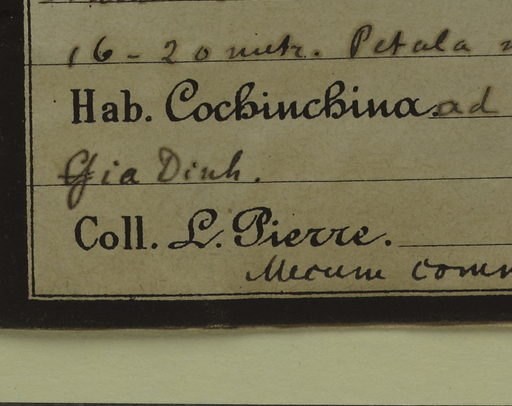 16-20 metr. Petala
Hab. Cochinchina. ad
Gia Dinh.
Coll. L. Pierre.
Mecum